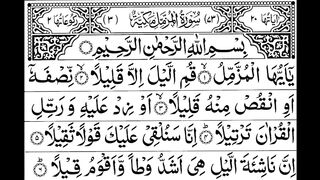 اٰیَاتُهَا ٢٠ (٧٣) سُوْرَةُ الْمُزَّمِّلِ مَكِّيَّةٌ (٣) رُكُوْعَاتُهَا ٢
بِسْمِ اللّٰهِ الرَّحْمٰنِ الرَّحِيْمِ
يٰۤاَيُّهَا الْمُزَّمِّلُ ۙ قُمِ الَّيْلَ اِلَّا قَلِيْلًا ۙ نِّصْفَهٗۤ
اَوِ انْقُصْ مِنْهُ قَلِيْلًا ۙ اَوْ زِدْ عَلَيْهِ وَ رَتِّلِ
الْقُرْاٰنَ تَرْتِيْلًا ؕ اِنَّا سَنُلْقِيْ عَلَيْكَ قَوْلًا ثَقِيْلًا
اِنَّ نَاشِئَةَ الَّيْلِ هِيَ اَشَدُّ وَطْاً وَّ اَقْوَمُ قِيْلًا ؕ